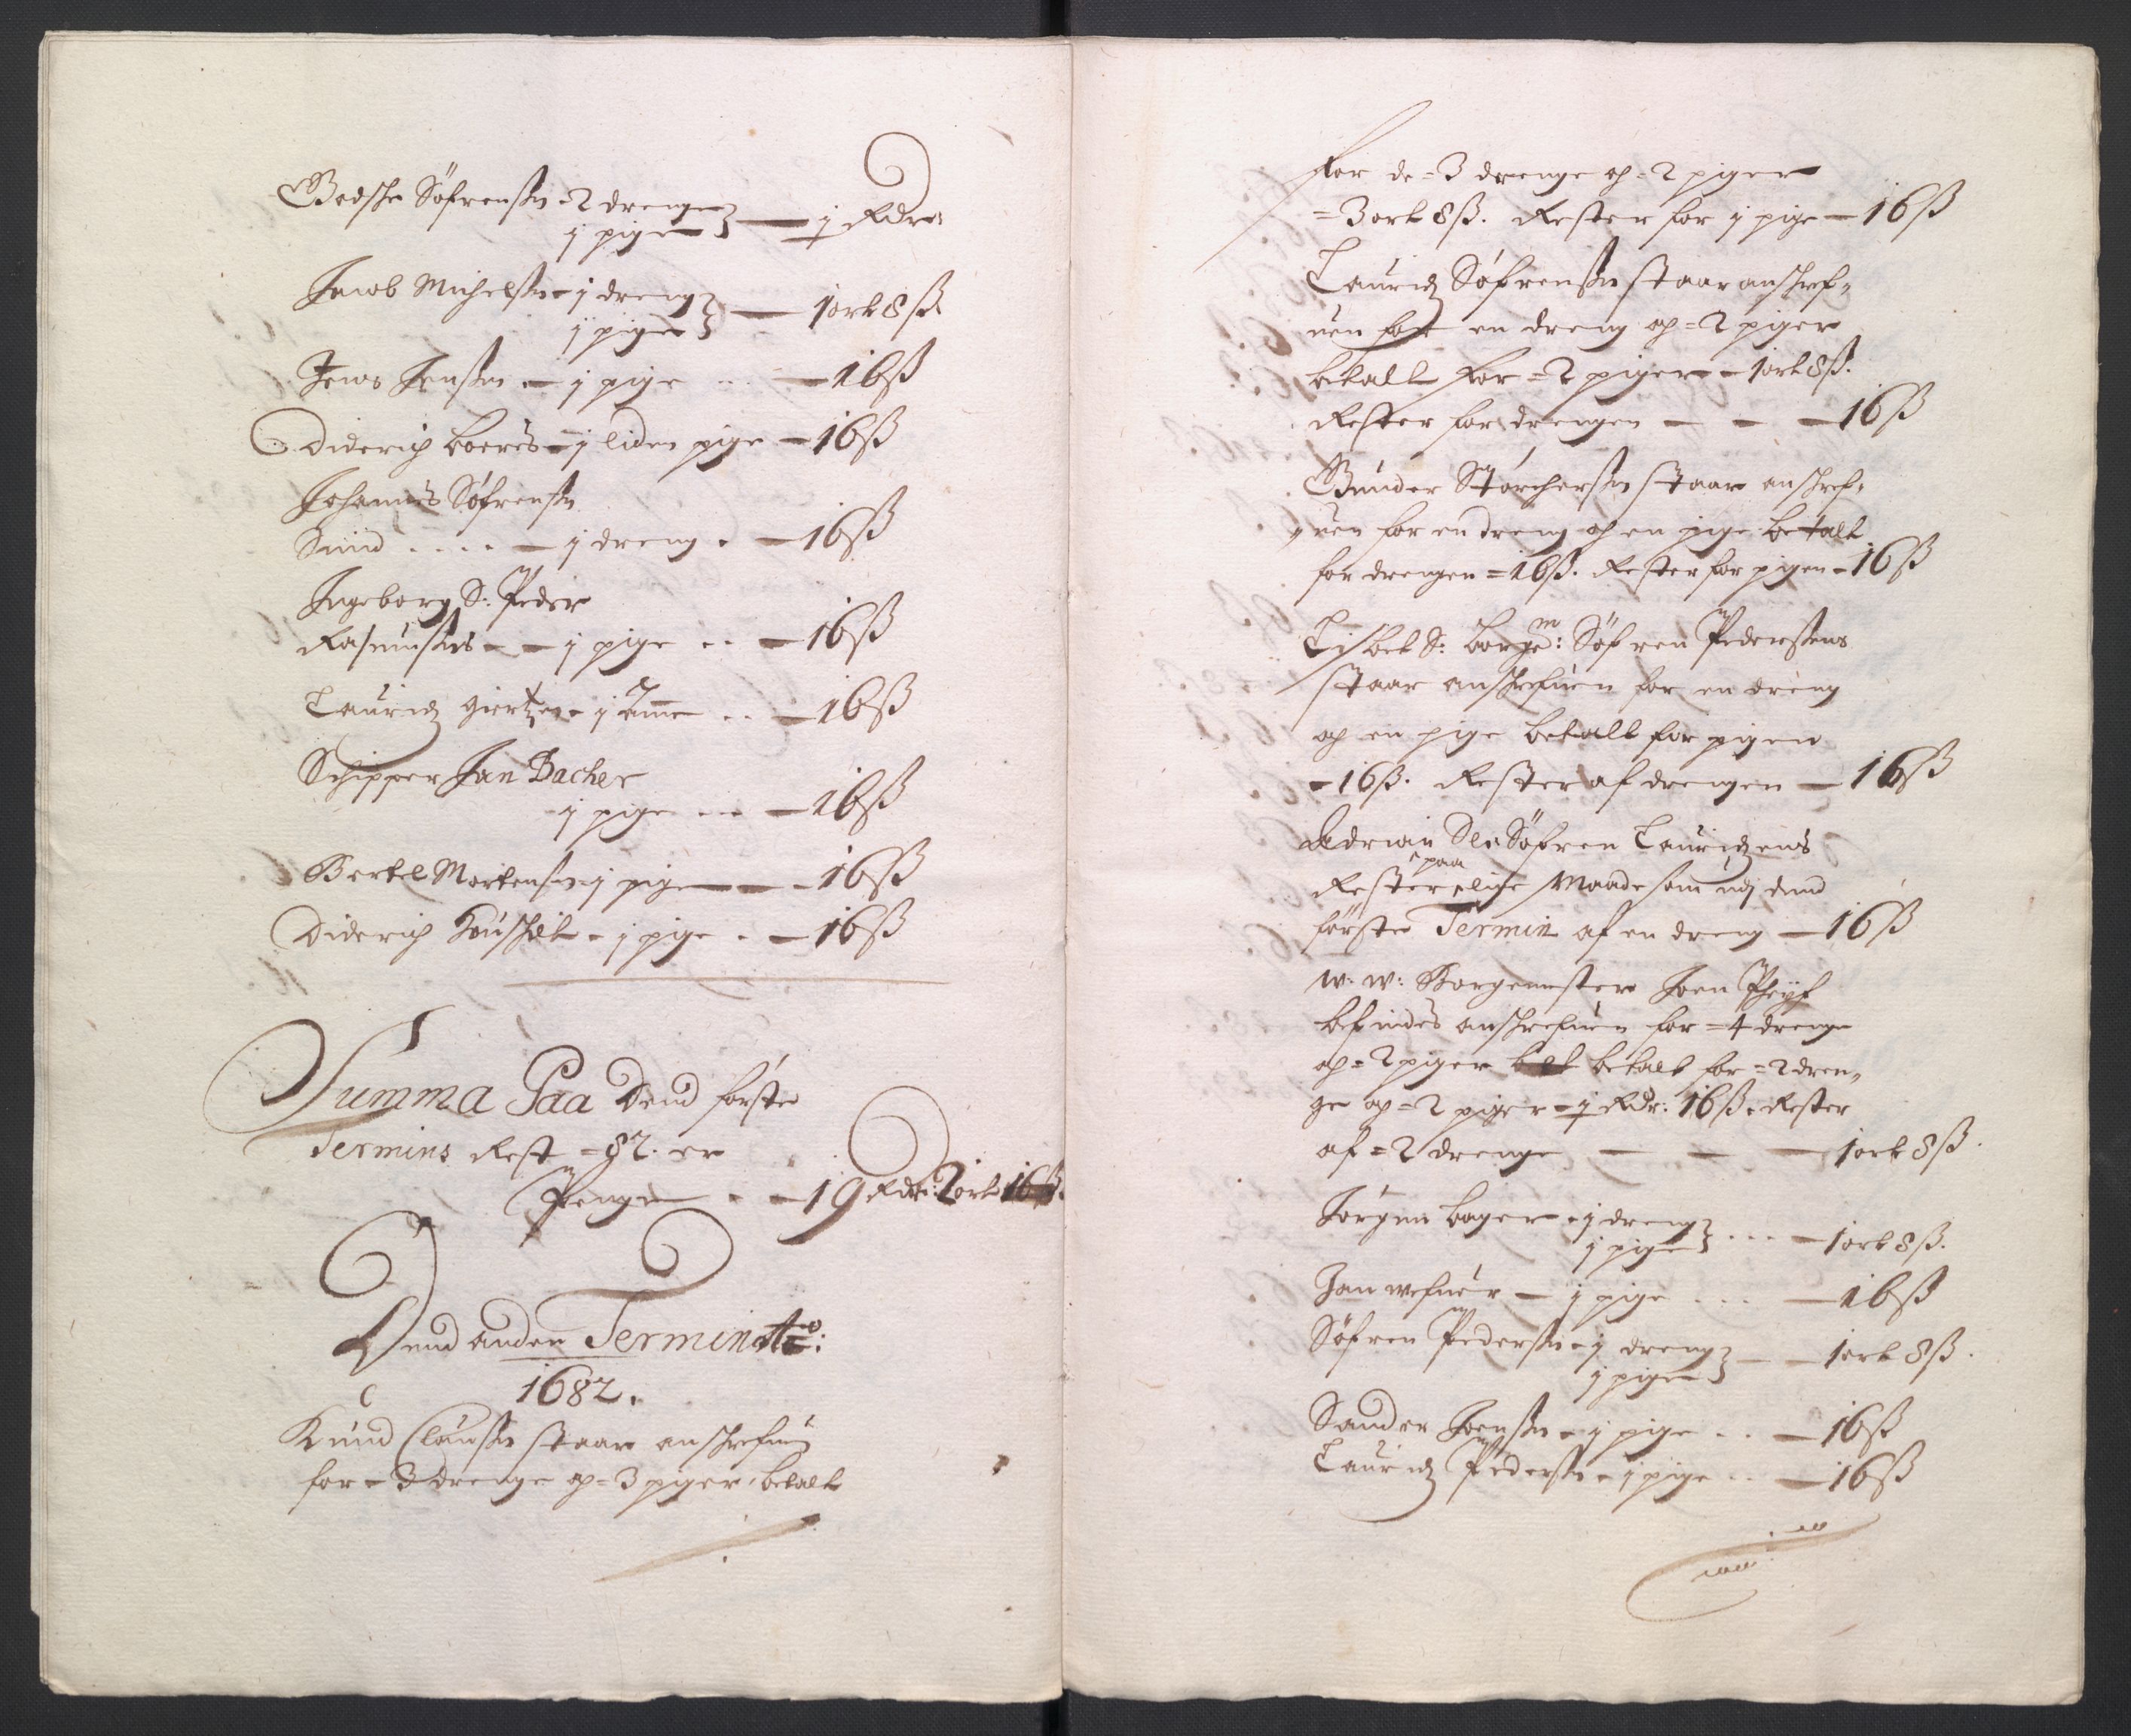 Bodsche Söfrensen - 2 drenge
j pige — j Rdr:
Jacob Michelsen - j dreng
j pige — 1 ort 8 ß
Jens Jensen - j pige — 16 ß
Diderich boeres - j liden pige — 16 ß
Johannes Söfrensen
Smid - j dreng — 16 ß
Ingeborg S: Peder
Rasmusens - j pige — 16 ß
Lauridz giertzen - j Amme — 16 ß
Schipper Jan Bacher
j pige — 16 ß
Bertel Mortensen - j pige — 16 ß
Diderich - j pige — 16 ß
Summa Paa Dend förste
Termins Rest = 82. er
Penge — 19 Rdr: 2 ort 16 ß.
Dend anden Termin Ao:
1682.
Knud Clausen staar anschrefuen
for = 3 drenge og = 3 piger, betalt
for de = 3 drenge og = 2 piger
= 3 ort 8 ß. Rester for j pige — 16 ß
Lauridz Söfrensen staar anschref„
uen for en dreng og = 2 piger
betalt for = 2 piger - 1 ort 8 ß.
Rester for drengen — 16 ß
Gunder Storchersen staar anschref„
„uen for en dreng og en pige betalt
for drengen = 16 ß. Rester for pigen - 16 ß
Lisbet S: borgem: Söfren Pedersens
staar anschrefuen for en dreng
og en pige betalt for pigen
- 16 ß. Rester af drengen — 16 ß
Adrian Sl: Söfren Lauridzens
Rester paa lige Maade som udj dend
förste Termin af en dreng — 16 ß
W: W: Borgemester Joen
befindes anschrefuen for = 4 drenge
og = 2 piger betalt for = 2 dren„
ge og = 2 piger - j Rdr: 16 ß. Rester
af = 2 drenge — 1 ort 8 ß.
Jörgen bager - j dreng
j pige — 1 ort 8 ß.
Jan wefuer — j pige — 16 ß
Söfren Pedersen - j dreng
j pige — 1 ort 8 ß.
Sander Joensen - j pige — 16 ß
Lauridz Pedersen - j pige — 16 ß